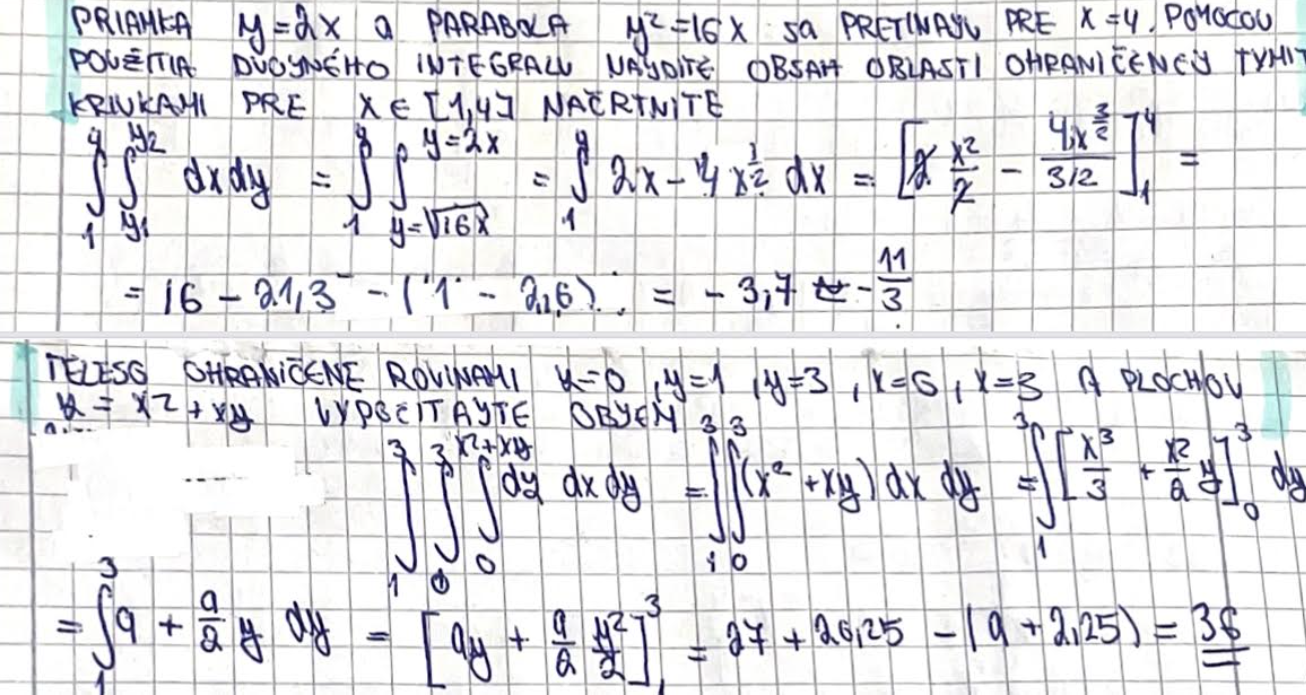 PRIAMKA y=2x a PARABOLA y²=16x sa PRETÍNAJÚ PRE x=4. POMOCOU
POUŽITIA DVOJNÉHO INTEGRALU NAJDITE OBSAH OBLASTI OHRANIČENEJ TÝMIT
KRIVKAMI PRE x∈[1,4] NAČRTNITE
∫₁⁴ ∫_{y1}^{y2} dxdy = ∫₁⁴ ∫_{y=√16x}^{y=2x} = ∫₁⁴ 2x - 4x^{1/2} dx = [2 x²/2 - 4x^{3/2}/3/2]₁⁴ =
= 16 - 21,3 - (1 - 2,6) = -3,7 ≈ -11/3
TELESO OHRANIČENÉ ROVINAMI z=0, y=1, y=3, x=0, x=3 A PLOCHOU
z = x²+xy VYPOČITAJTE OBJEM
∫₁³ ∫₀³ ∫₀^{x²+xy} dz dx dy = ∫₁³ ∫₀³ (x²+xy) dx dy = ∫₁³ [x³/3 + x²/2 y]₀³ dy
= ∫₁³ 9 + 9/2 y dy = [9y + 9/2 y²/2]₁³ = 27 + 20,25 - (9 + 2,25) = 36